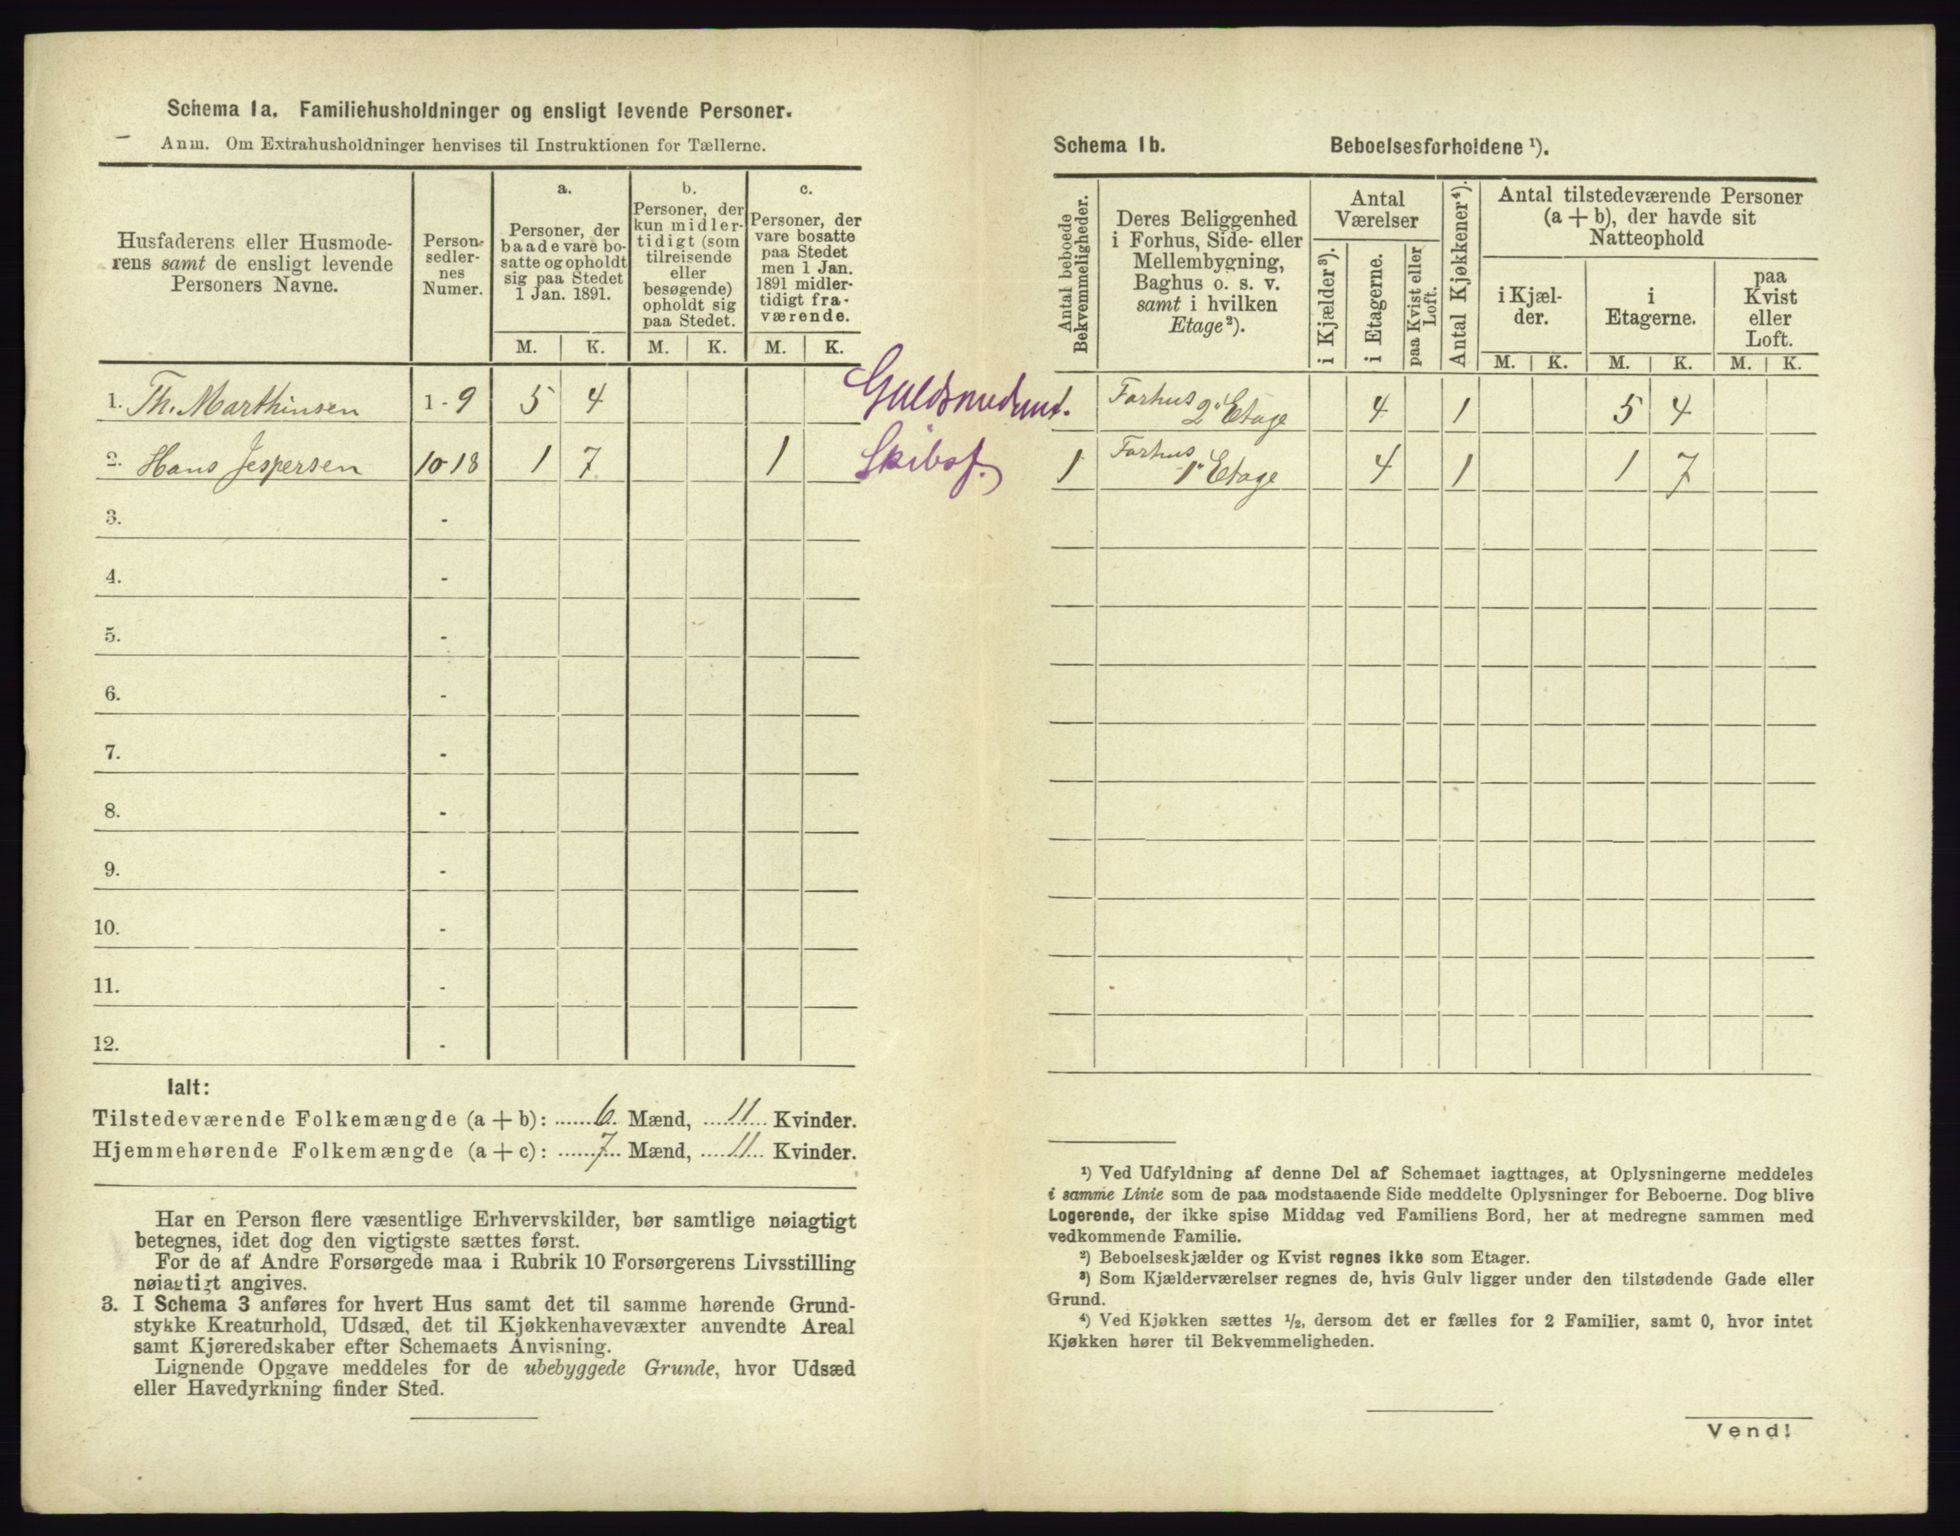 Schema 1a. Familiehusholdninger og ensligt levende Personer.
Anm. Om Extrahusholdninger henvises til Instruktionen for Tællerne.
Husfaderens eller Husmode-
rens samt de ensligt levende
Personers Navne.
Person-
sedler-
nes
Numer.
a.
Personer, der
baade vare bo-
satte og opholdt
sig paa Stedet
1 Jan. 1891.
b.
Personer, der
kun midler-
tidigt (som
tilreisende
eller
besøgende)
opholdt sig
paa Stedet.
c.
Personer, der
vare bosatte
paa Stedet
men 1 Jan.
1891 midler-
tidigt fra-
værende.
M. K. M. K. M. K.
1. Th. Marthinsen 1 - 9 5 4
2. Hans Jespersen 10-18 1 7 1 Skibsf.
3. -
4. -
5. -
6. -
7. -
8. -
9. -
10. -
11. -
12. -
Ialt:
Tilstedeværende Folkemængde (a + b): 6 Mænd, 11 Kvinder.
Hjemmehørende Folkemængde (a + c): 7 Mænd, 11 Kvinder.
Har en Person flere væsentlige Erhvervskilder, bør samtlige nøiagtigt
betegnes, idet dog den vigtigste sættes først.
For de af Andre Forsørgede maa i Rubrik 10 Forsørgerens Livsstilling
nøiagtigt angives.
3. I Schema 3 anføres for hvert Hus samt det til samme hørende Grund-
stykke Kreaturhold, Udsæd, det til Kjøkkenhavevæxter anvendte Areal
samt Kjøreredskaber efter Schemaets Anvisning.
Lignende Opgave meddeles for de ubebyggede Grunde, hvor Udsæd
eller Havedyrkning finder Sted.
Schema 1b. Beboelsesforholdene ¹).
Antal beboede
Bekvemmeligheder.
Deres Beliggenhed
i Forhus, Side- eller
Mellembygning,
Baghus o. s. v.
samt i hvilken
Etage²).
Antal
Værelser
i Kjælder³).
i Etagerne.
paa Kvist eller
Loft.
Antal Kjøkkener⁴).
Antal tilstedeværende Personer
(a + b), der havde sit
Natteophold
i Kjæl-
der.
i
Etagerne.
paa
Kvist
eller
Loft.
M. K. M. K. M. K.
Forhus
2' Etage 4 1 5 4
Forhus
1 1" Etage 4 1 1 7
¹) Ved Udfyldning af denne Del af Schemaet iagttages, at Oplysningerne meddeles
i samme Linie som de paa modstaaende Side meddelte Oplysninger for Beboerne. Dog blive
Logerende, der ikke spise Middag ved Familiens Bord, her at medregne sammen med
vedkommende Familie.
²) Beboelseskjælder og Kvist regnes ikke som Etager.
³) Som Kjælderværelser regnes de, hvis Gulv ligger under den tilstødende Gade eller
Grund.
⁴) Ved Kjøkken sættes ½, dersom det er fælles for 2 Familier, samt 0, hvor intet
Kjøkken hører til Bekvemmeligheden.
Vend!